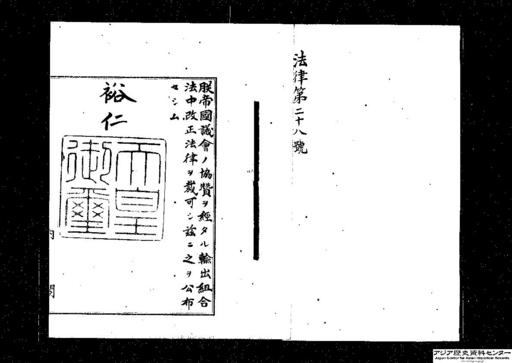 法律第二十八號
朕帝國議會ノ協贊ヲ經タル輸出組合
法中改正法律ヲ裁可シ茲ニ之ヲ公布
セシム
裕仁
天皇
御璽
内閣
アジア歴史資料センター
Japan Center for Asian Historical Records